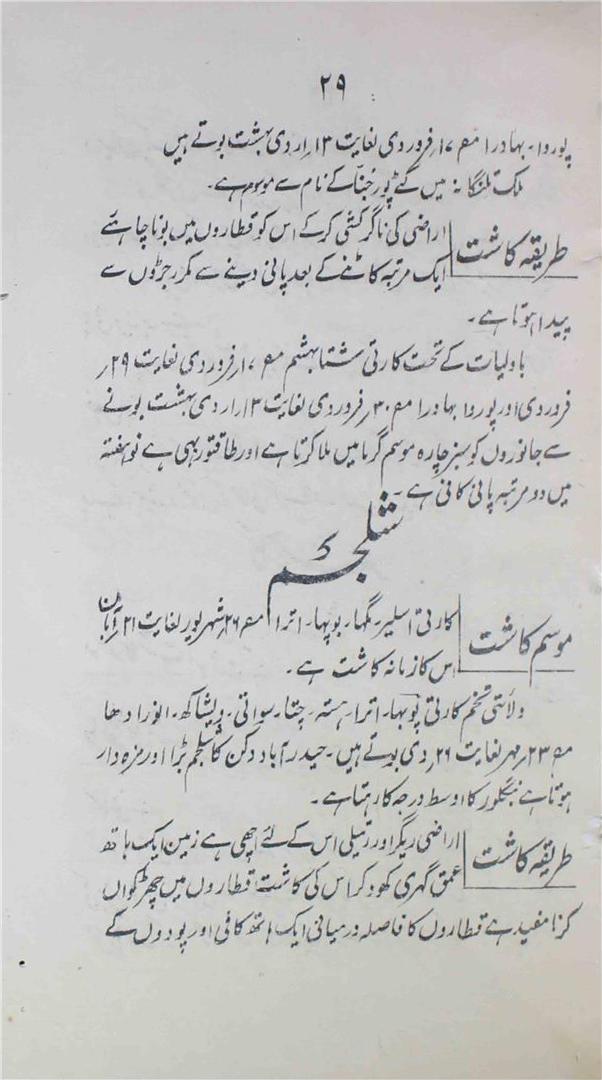 ۲۹
پوروا۔ بہادرا م ۱۷؍ فروردی لغایت ۱۳؍ اردی بہشت بوتے ہیں
ملک تلنگانہ میں گے پور خبنا کے نام سے موسوم ہے۔
طریقہ کاشت
اراضی کی ناگر کشی کر کے اس کو قطاروں میں بونا چاہئے
ایک مرتبہ کاٹنے کے بعد پانی دینے سے مکرر جڑوں سے
پیدا ہوتا ہے۔
باولیات کے تحت کارتی ستتا بہشم م ۱۷؍ فروردی لغایت ۲۹؍
فروردی اور پوروا بہادرا م ۳۰؍ فروردی لغایت ۱۳؍ اردی بہشت بونے
سے جانوروں کو سبز چارہ موسم گرما میں ملا کرتا ہے اور طاقتور بہی ہے نو ہفتہ
میں دو مرتبہ پانی کافی ہے۔
شلجم
موسم کاشت
کارتی اسلیر۔ گہا۔ پوپہا۔ اترا م ۲۶؍ شہریور لغایت ۲۱؍ آبان
اس کا زمانہ کاشت ہے۔
ولائتی تخم کارتی پوبہا۔ اترا۔ ہستہ۔ چتا۔ سواتی۔ ویشاکھ۔ انورادھا
م ۲۳؍ مہر لغایت ۲۶؍ دی بوتے ہیں۔ حیدرآباد دکن کا شلجم بڑا اور مزہ دار
ہوتا ہے بنگلور کا اوسط درجہ کا رہتا ہے۔
طریقہ کاشت
اراضی ریگڑ اور رتیلی اس کے لئے اچھی ہے زمین ایک ہاتھ
عمق گہری کھود کر اس کی کاشت قطاروں میں چھڑکواں
کرنا مفید ہے قطاروں کا فاصلہ درمیانی ایک ہاتھ کافی اور پودوں کے